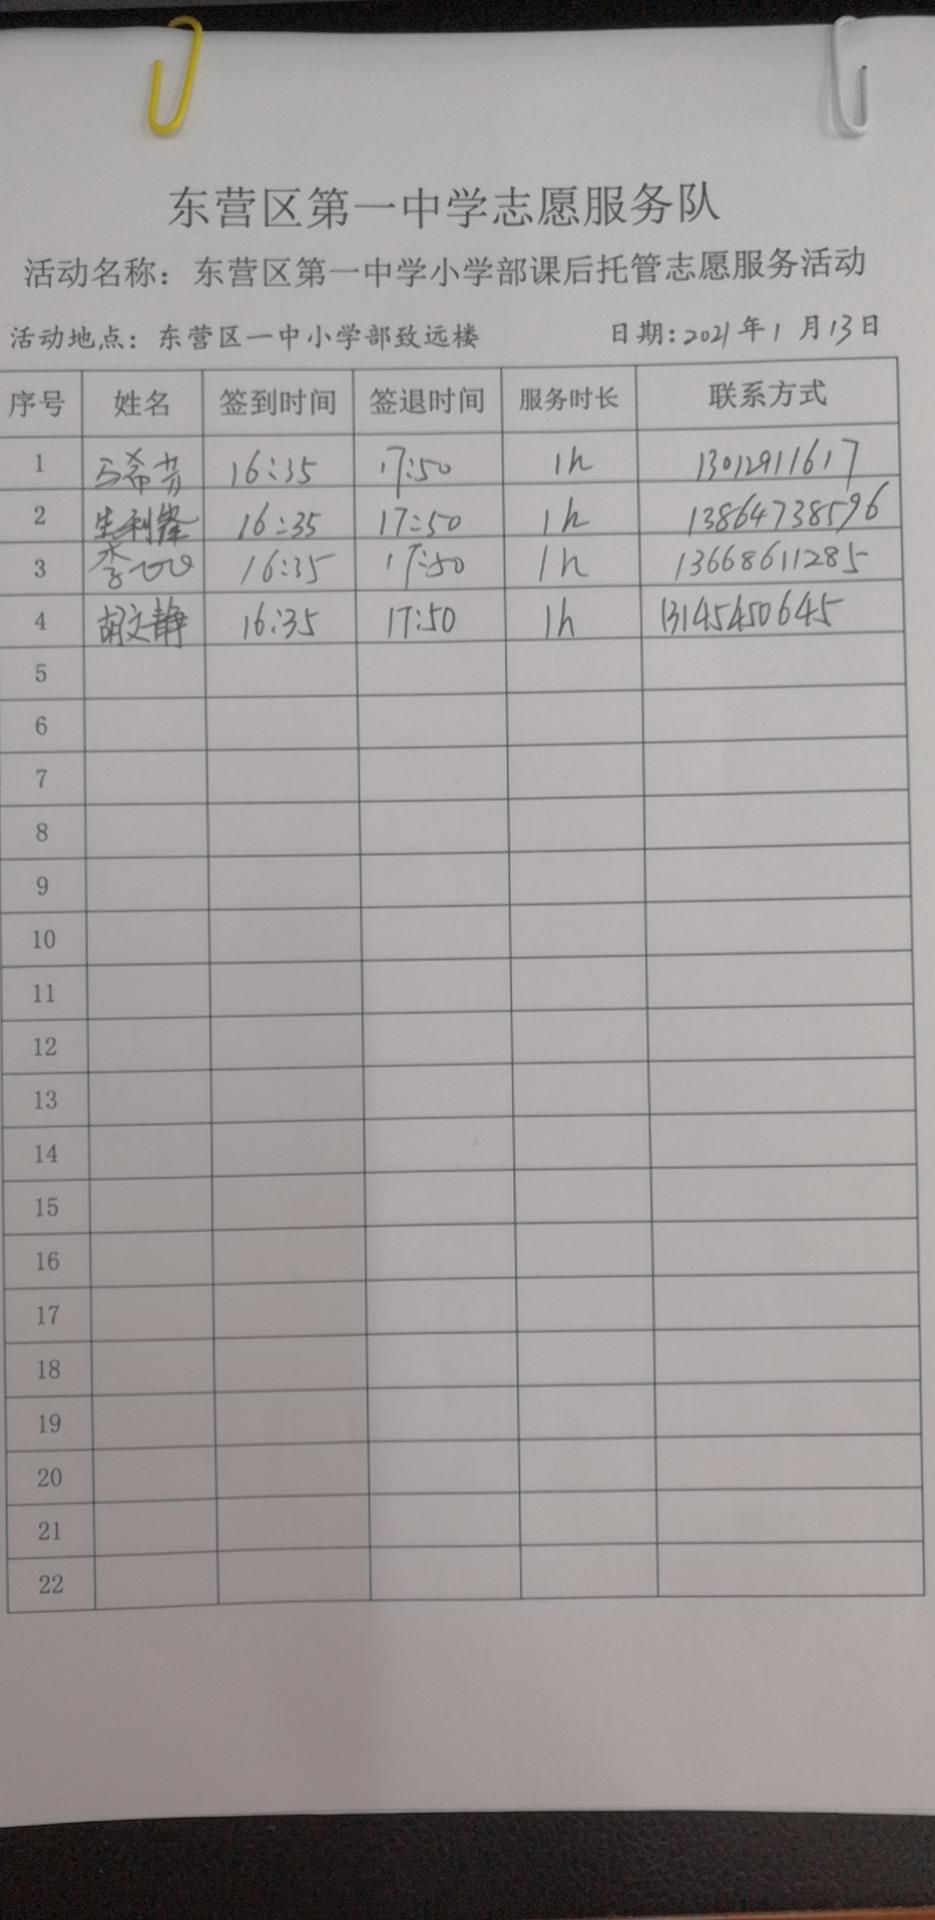 东营区第一中学志愿服务队
活动名称：东营区第一中学小学部课后托管志愿服务活动
活动地点：东营区一中小学部致远楼 日期：2021年1月13日
序号 姓名 签到时间 签退时间 服务时长 联系方式
1 马希芳 16:35 17:50 1h 13012911617
2 生利锋 16:35 17:50 1h 13864738596
3 李 16:35 17:50 1h 13668611285
4 胡文静 16:35 17:50 1h 13145450645
5
6
7
8
9
10
11
12
13
14
15
16
17
18
19
20
21
22